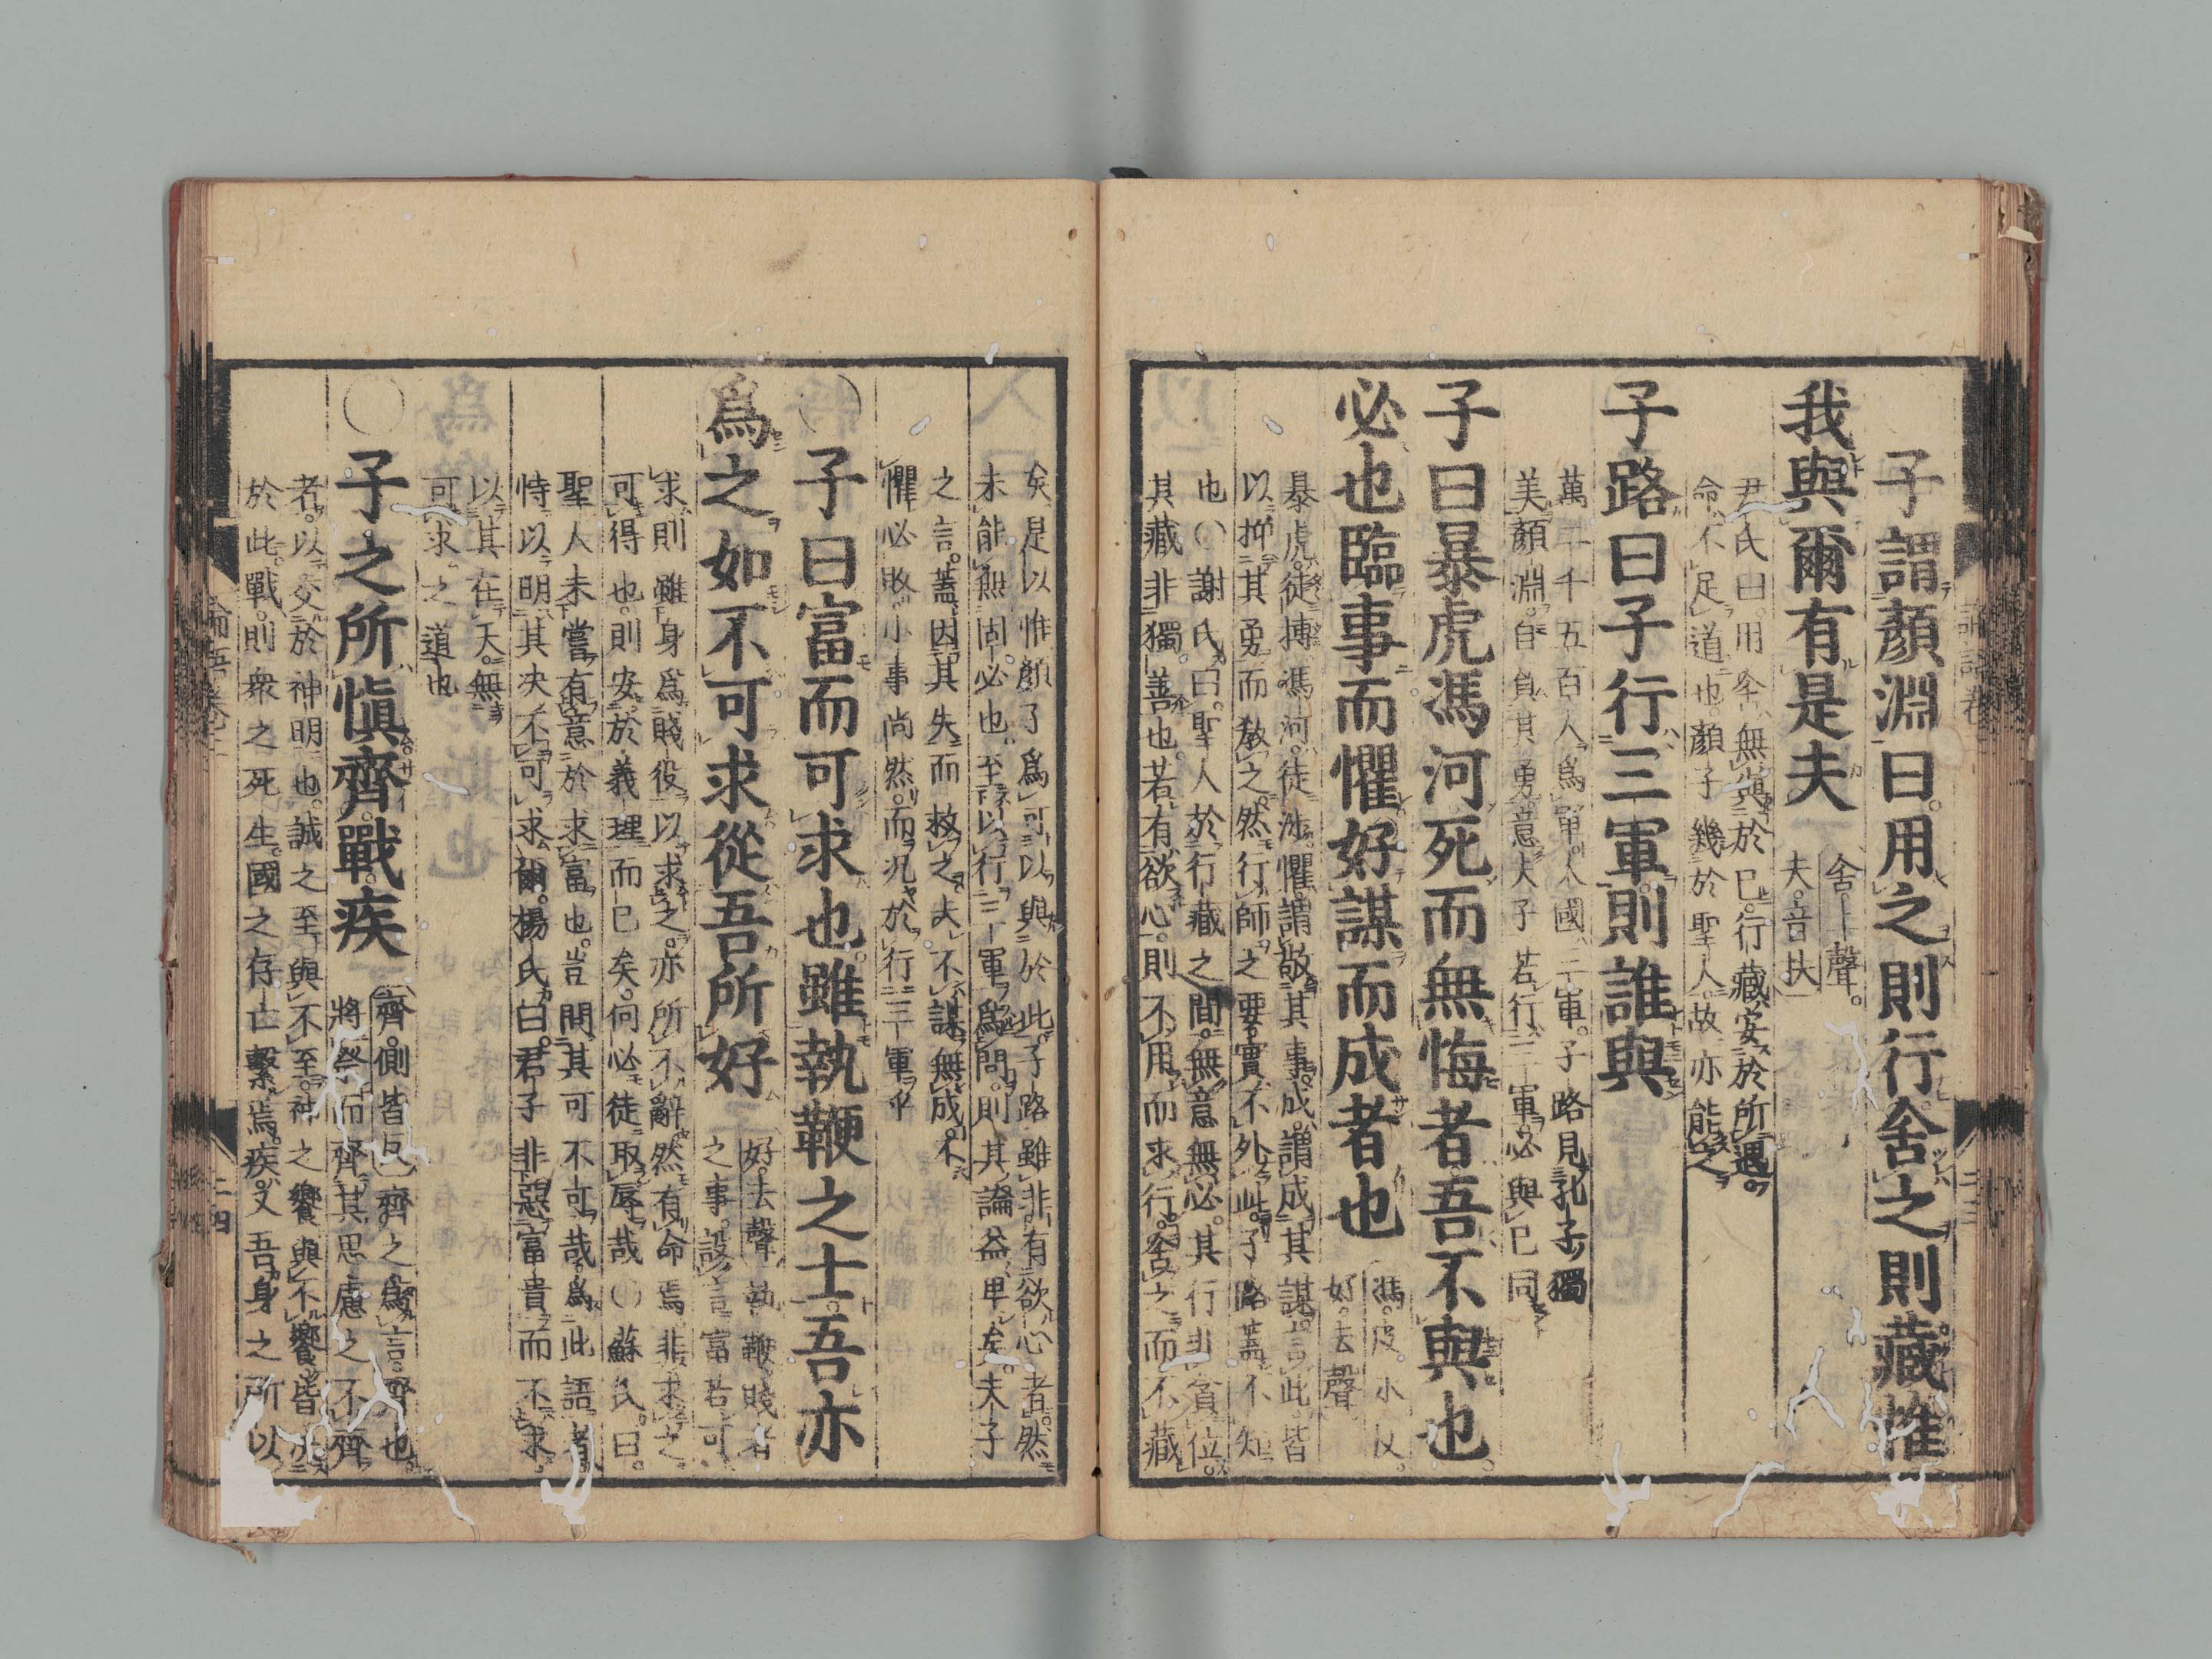 子謂顏淵曰。用之則行舍之則藏惟
我與爾有是夫
舍上聲。
夫。音扶
尹氏曰。用舍無與於己。行藏安於所遇。
命不足道也。顏子幾於聖人。故亦能之
子路曰子行三軍。則誰與
萬二千五百人爲軍。大國三軍。子路見孔子獨
美顏淵。自負其勇。意夫子若行三軍。必與己同
子曰暴虎馮河死而無悔者。吾不與也。
必也臨事而懼。好謀而成者也
馮。皮冰反。
好。去聲
暴虎。徒搏。馮河。徒涉。懼。謂敬其事。成。謂成其謀。言此皆
以抑其勇而教之。然行師之要實不外此。子路蓋不知
也○謝氏曰。聖人於行藏之間。無意無必。其行非貪位。
其藏非獨善也。若有欲心。則不用而求行。舍之而不藏
矣。是以惟顏子爲可以與於此。子路雖非有欲心者。然
未能無固必也。至以行三軍爲問。則其論益卑矣。夫子
之言。蓋因其失而救之。夫不謀無成。不
懼必敗。小事尚然。而況於行三軍乎
○子曰富而可求也。雖執鞭之士。吾亦
爲之如不可求從吾所好
好。去聲。執鞭。賤者
之事。設言富若可
求。則雖身爲賤役以求之。亦所不辭。然有命焉。非求之
可得也。則安於義理而已矣。何必徒取辱哉○蘇氏曰。
聖人未嘗有意於求富也。豈問其可不可哉。爲此語者。
特以明其決不可求爾。楊氏曰。君子非惡富貴而不求。
以其在天。無
可求之道也
○子之所愼齊。戰。疾
齊。側皆反。齊之爲言。齊也
將祭而齊其思慮之不齊
者。以交於神明也。誠之至與不至。神之饗與不饗。皆決
於此。戰。則衆之死生。國之存亡繫焉。疾。又吾身之所以
論語卷
二四